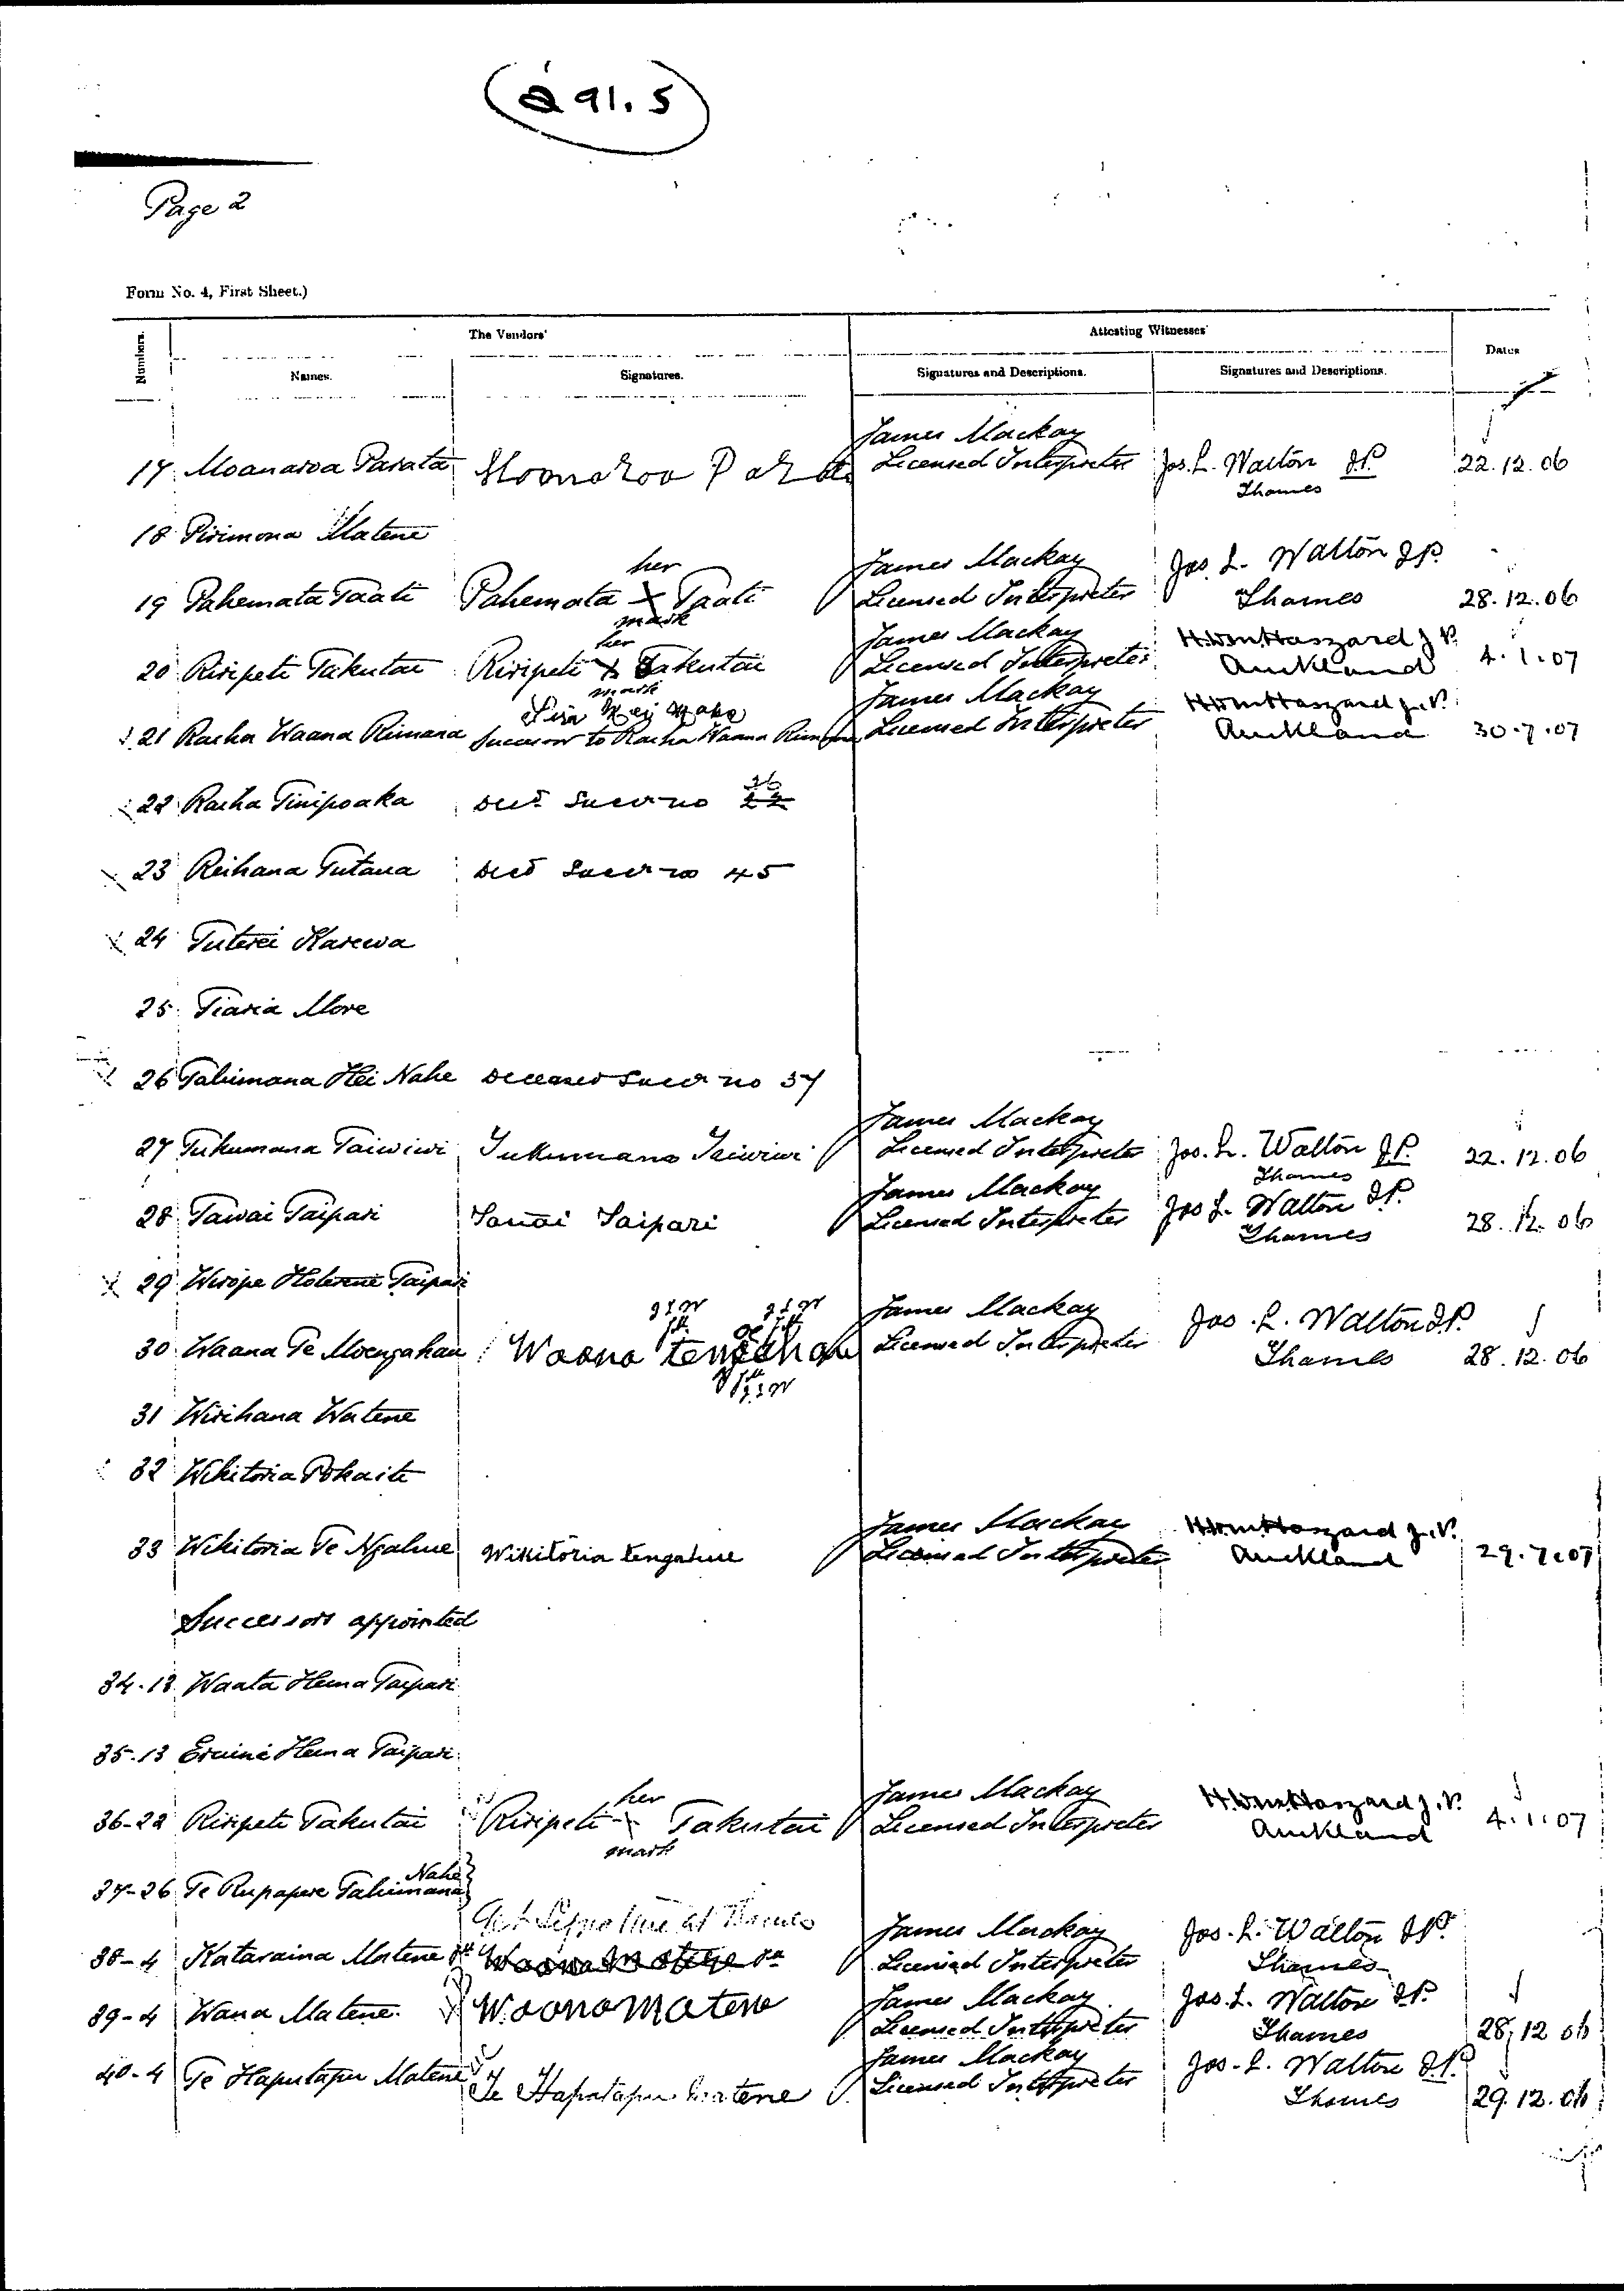 291.5
Page 2
Form No. 4, First Sheet.)
Numbers. The Vendors' Attesting Witnesses' Dates
Names. Signatures. Signatures and Descriptions. Signatures and Descriptions.
James Mackay
17 Moanaroa Parata Moonaroa Parata Licensed Interpreter Jos. L. Walton J.P. 22.12.06
Thames
18 Pirimona Matene
her James Mackay Jos. L. Walton J.P.
19 Pahemata Taati Pahemata X Taati Licensed Interpreter Thames 28.12.06
mark
her James Mackay H. Wm Haszard J.P.
20 Riripeti Takutai Riripeti X Takutai Licensed Interpreter Auckland 4.1.07
mark
James Mackay H Wm Haszard J.P.
21 Raiha Waana Rimana Successor to Raiha Waana Licensed Interpreter Auckland 30.7.07
36
22 Raiha Tinipoaka Decd Succr no 22
23 Reihana Tutaua Decd Succr no 45
24 Tuterei Karewa
25 Tiaria More
26 Tahimana Hei Nahe Deceased Succr no 37
James Mackay
27 Tukumana Taiwiwi Tukumana Taiwiwi Licensed Interpreter Jos. L. Walton J.P. 22.12.06
Thames
James Mackay Jos L. Walton J.P.
28 Tawai Taipari Tauai Taipari Licensed Interpreter Thames 28.12.06
29 Wirope Hoterene Taipari
James Mackay Jos. L. Walton J.P.
30 Waana Te Moengahau Waana Licensed Interpreter Thames 28.12.06
31 Wirihana Watene
32 Wikitoria Pokaiti
James Mackay H Wm Haszard J.P.
33 Wikitoria Te Ngahue Wikitoria tengahue Licensed Interpreter Auckland 29.7.07
Successors appointed
34-13 Waata Hema Taipari
35-13 Eruini Hema Taipari
her James Mackay H. Wm Haszard J.P.
36-22 Riripeti Takutai Riripeti X Takutai Licensed Interpreter Auckland 4.1.07
mark
Nahe
37-26 Te Rupapere Tahimana
at Thames
James Mackay Jos. L. Walton J.P.
38-4 Kataraina Matene Waana Matene Licensed Interpreter Thames
James Mackay Jos. L. Walton J.P.
39-4 Wana Matene Woonomatene Licensed Interpreter Thames 28.12.06
James Mackay Jos. L. Walton J.P.
40-4 Te Haputapu Matene Te Haputapu Matene Licensed Interpreter Thames 29.12.06